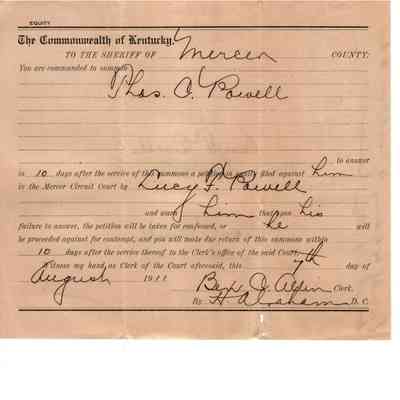 EQUITY
The Commonwealth of Kentucky,
TO THE SHERIFF OF Mercer COUNTY:
You are commanded to summon
Thos. C. Powell
to answer
in 10 days after the service of this summons a petition in equity filed against him
in the Mercer Circuit Court by Lucy F. Powell
and warn him that upon his
failure to answer, the petition will be taken for confessed, or he will
be proceeded against for contempt, and you will make due return of this summons within
10 days after the service thereof to the Clerk's office of the said Court.
Witness my hand, as Clerk of the Court aforesaid, this 7th day of
August 1911 Ben C. Allin Clerk.
By H. Abraham D. C.